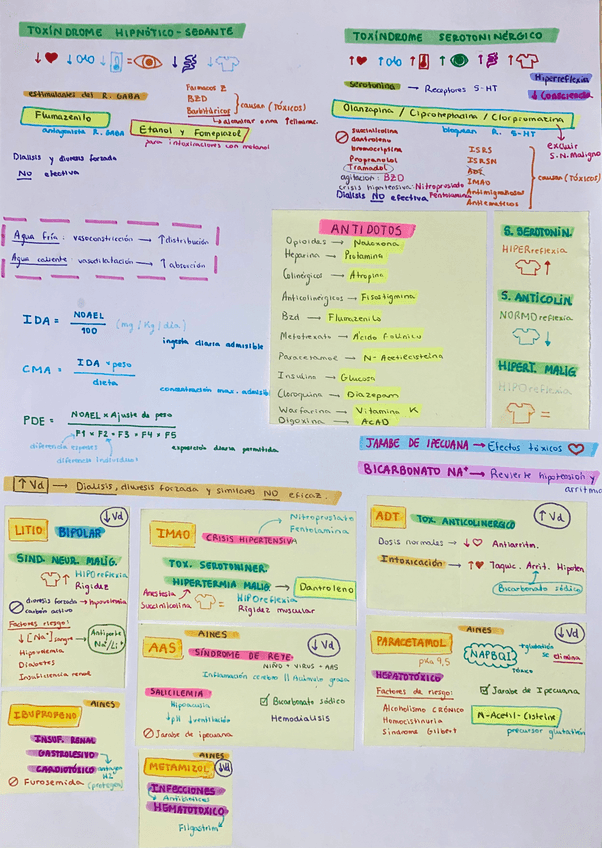 TOXÍNDROME HIPNÓTICO-SEDANTE
estimulantes del R. GABA
Flumazenilo
antagonista R. GABA
Fármacos Z
BZD
Barbitúricos
causan (TÓXICOS)
Etanol y Fomepizol
para intoxicaciones con metanol
Dialisis y diuresis forzada
NO efectiva
TOXÍNDROME SEROTONINÉRGICO
Serotonina → Receptores 5-HT
Hiperreflexia
↓ Consciencia
Olanzapina / Ciproheptadina / Clorpromazina
bloquean R. 5-HT
excluir
S.N.Maligno
succinilcolina
dantroleno
bromocriptina
Propranolol
Tramadol
agitacion: BZD
crisis hipertensiva: Nitroprusiato
Fentolamina
Dialisis NO efectiva
ISRS
ISRSN
ADT
IMAO
Antimigrañosos
Antiemeticos
causan (TÓXICOS)
Agua fría: vasoconstricción → ↑distribución
Agua caliente: vasodilatación → ↑ absorción
IDA = NOAEL / 100 (mg/Kg/día)
ingesta diaria admisible
CMA = IDA × peso / dieta
concentración max. admisible
PDE = NOAEL × Ajuste de peso / F1 × F2 × F3 × F4 × F5
diferencia especies
diferencia individual
exposición diaria permitida
ANTIDOTOS
Opioides → Naloxona
Heparina → Protamina
Colinérgicos → Atropina
Anticolinérgicos → Fisostigmina
Bzd → Flumazenilo
Metotrexato → Ácido Folínico
Paracetamol → N-Acetilcisteína
Insulina → Glucosa
Cloroquina → Diazepam
Warfarina → Vitamina K
Digoxina → AcAD
S. SEROTONIN.
HIPERreflexia
↑
S. ANTICOLIN.
NORMOreflexia
↓
HIPERT. MALIG
HIPOreflexia
=
JARABE DE IPECUANA → Efectos tóxicos
BICARBONATO NA+ → Revierte hipotensión y
arritmia
↑Vd → Dialisis, diuresis forzada y similares NO eficaz.
LITIO BIPOLAR
↓Vd
SIND. NEUR. MALIG.
↑ HIPOreflexia
Rigidez
diuresis forzada → hipovolemia
carbón activo
Factores riesgo:
↓[Na+] sangre → Antiporte
Na+/Li+
Hipovolemia
Diabetes
Insuficiencia renal
IMAO
CRISIS HIPERTENSIVA
Nitroprusiato
Fentolamina
TOX. SEROTONINER.
HIPERTERMIA MALIG → Dantroleno
Anestesia
Succinilcolina
= HIPOreflexia
Rigidez muscular
ADT TOX. ANTICOLINERGICO
↑Vd
Dosis normales → ↓ Antiarritm.
Intoxicación → ↑ Taquic. Arrit. Hipoten
Bicarbonato sódico
AINES
AAS
↓Vd
SÍNDROME DE REYE
NIÑO + VIRUS + AAS
Inflamación cerebro || Acúmulo grasa
SALICILEMIA
Hipoacusia
↓pH ↓ventilación
Jarabe de ipecuana
Bicarbonato sódico
Hemodialisis
AINES
PARACETAMOL
↓Vd
pKa 9,5
NAPBQI
Tóxico
+glutatión
se elimina
HEPATOTÓXICO
Factores de riesgo:
Alcoholismo CRÓNICO
Homocistinuria
Sindrome Gilbert
Jarabe de Ipecuana
N-Acetil-Cisteína
precursor glutatión
AINES
IBUPROFENO
INSUF. RENAL
GASTROLESIVO
CARDIOTÓXICO
antagon
H2
(protegen)
Furosemida
AINES
METAMIZOL
↓Vd
INFECCIONES
Antibióticos
HEMATOTOXICO
Filgastrim